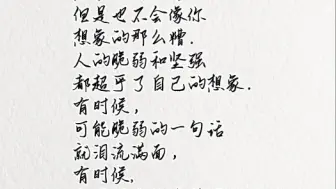 但是也不会像你
想象的那么糟.
人的脆弱和坚强
都超乎了自己的想象.
有时候,
可能脆弱的一句话
就泪流满面,
有时候,